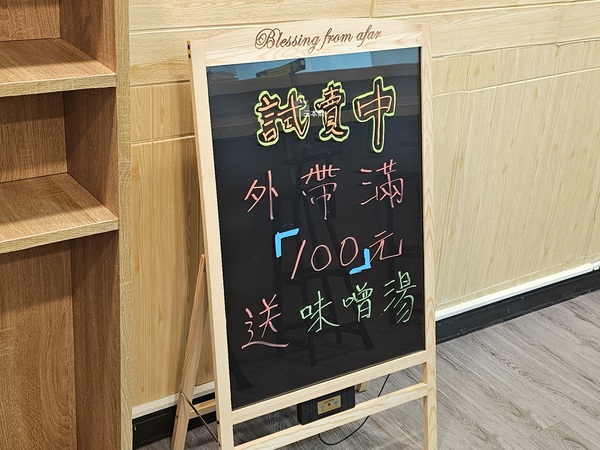 Blessing from afar
試賣中
外帶滿
「100」元
送味噌湯